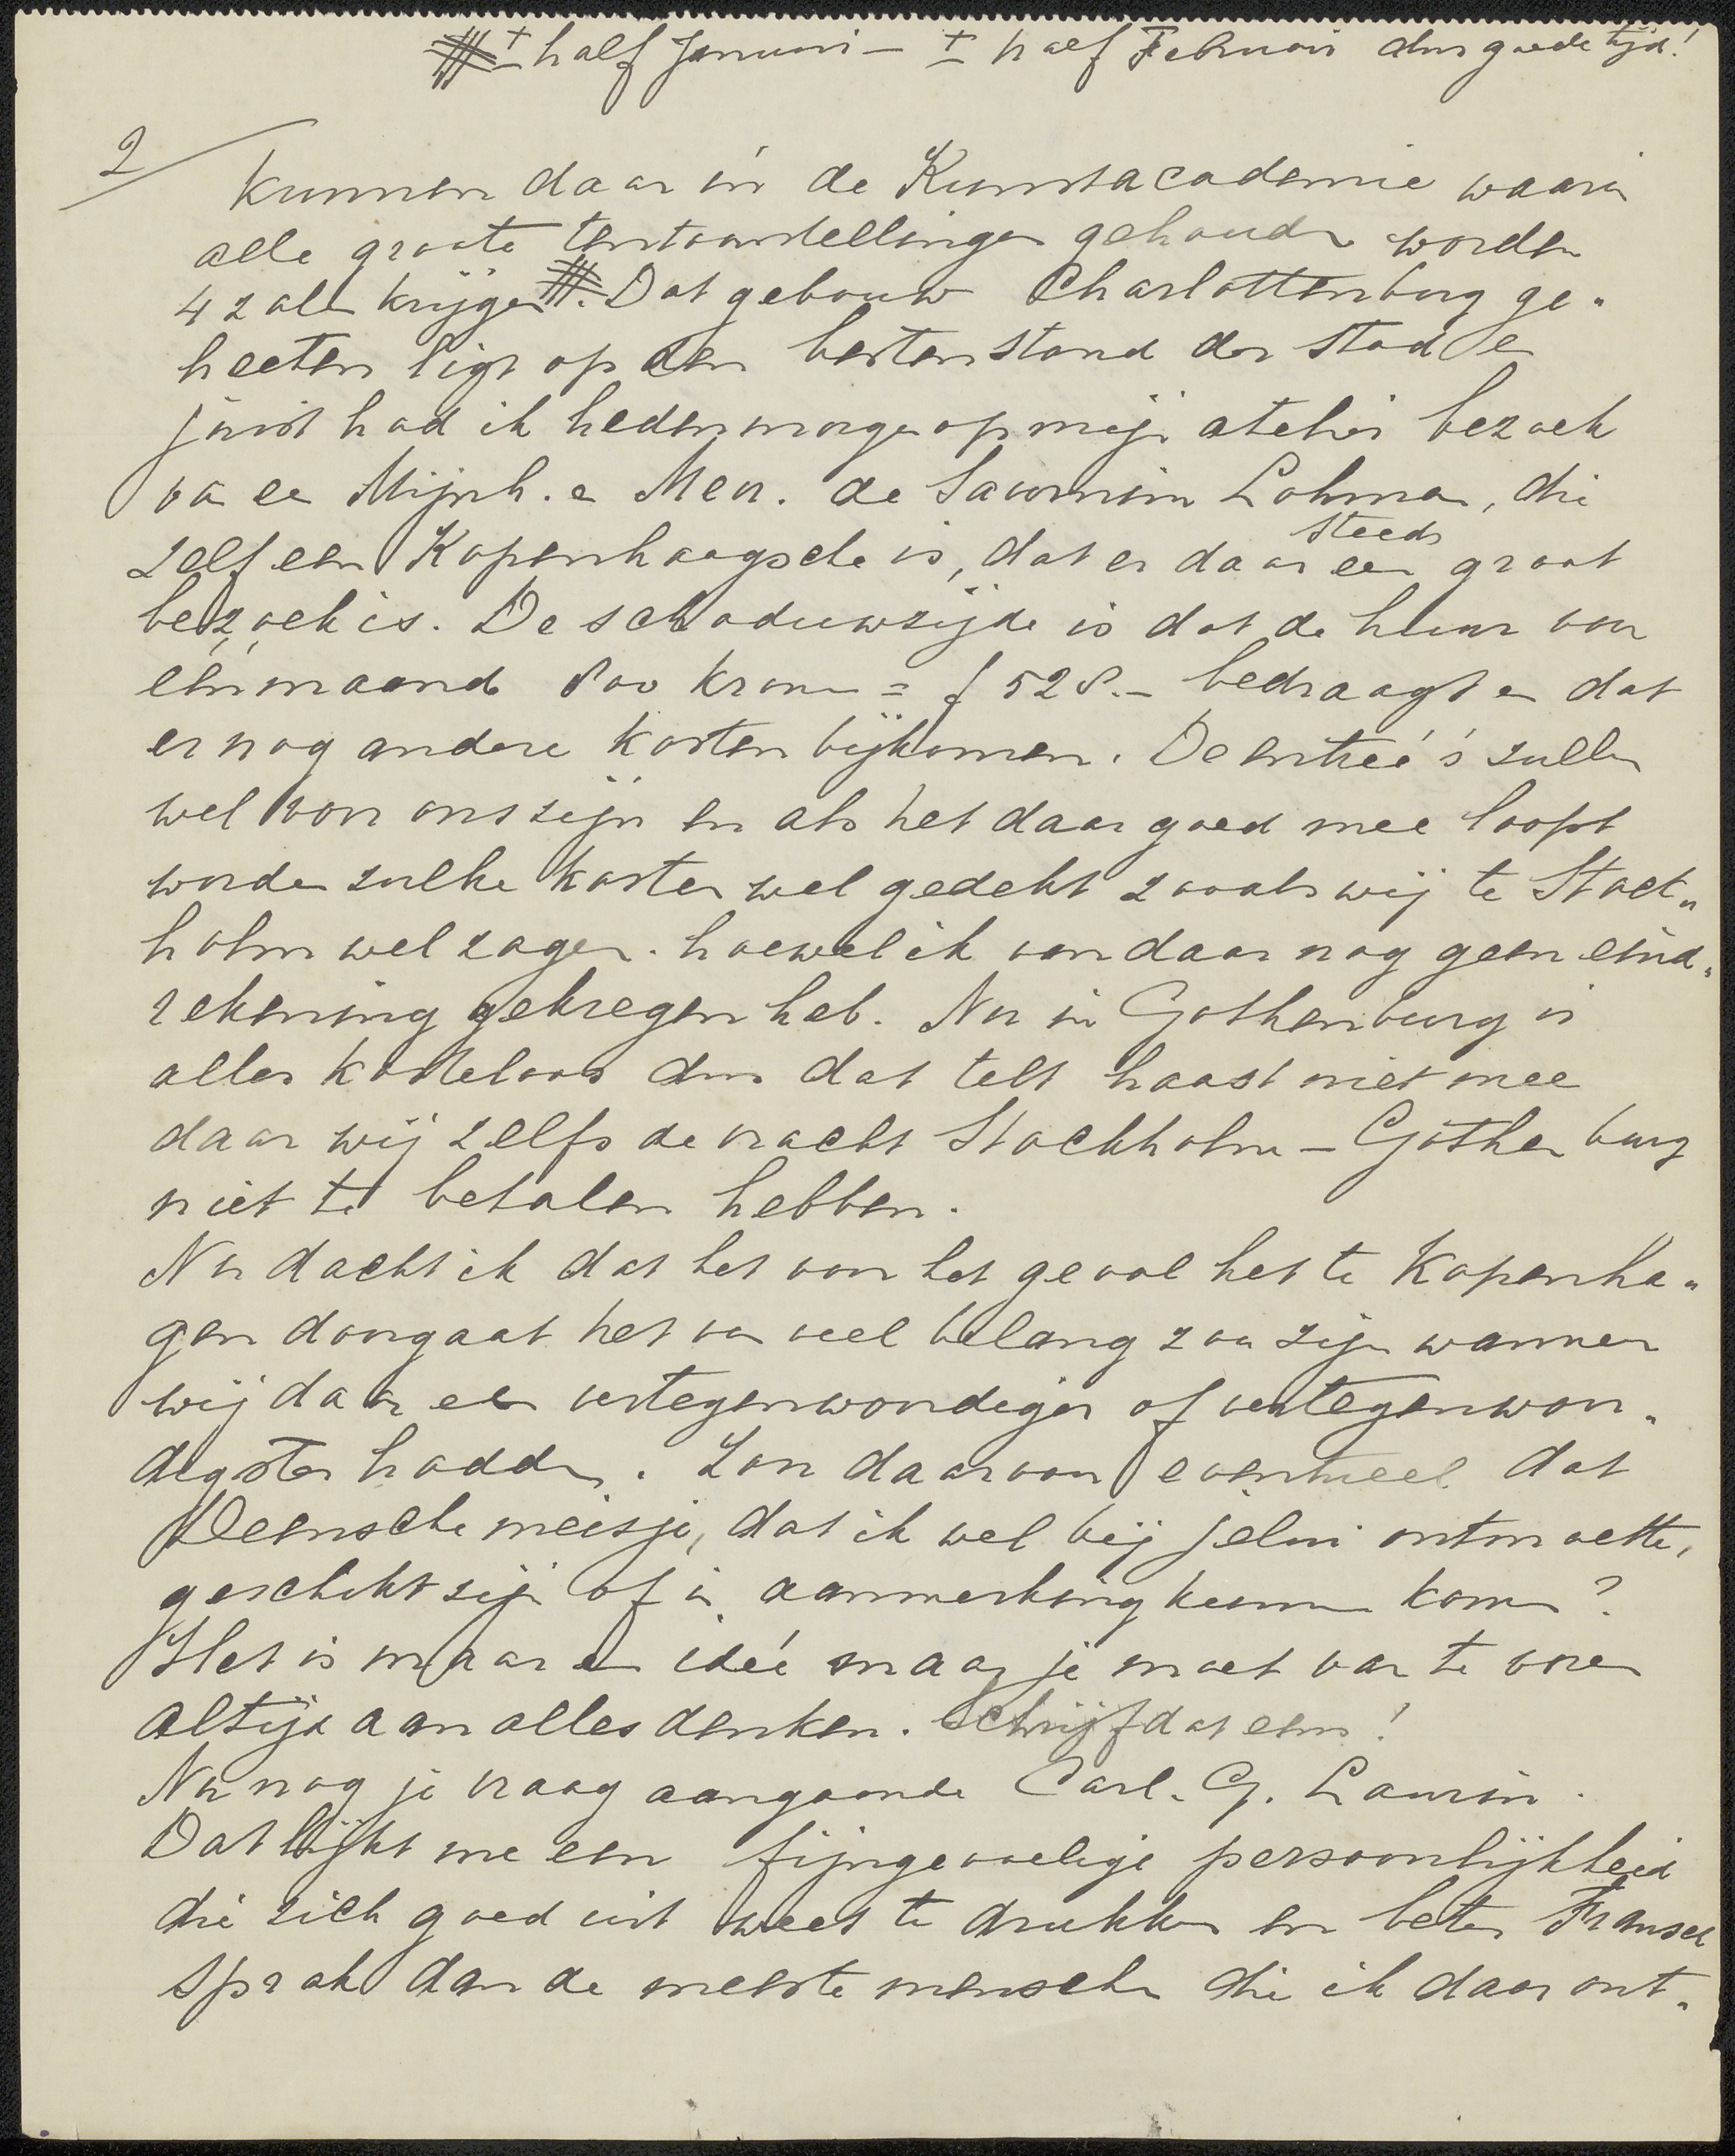 ± half Januari – ± half Februari dus goede tijd!
2/
kunnen daar in de Kunstacademie waarin
alle groote tentoonstellingen gehouden worden
4 zalen krijgen. Dat gebouw Charlottenburg ge„
heeten ligt op den besten stand der stad en
juist had ik hedenmorgen op mijn atelier bezoek
van een Mijnh. en Mevr. de Savornin Lohman, die
zelf een Kopenhaagsche is, dat er daar een groot
steeds
bezoek is. De schaduwzijde is dat de huur voor
één maand 800 kronen = f 528.– bedraagt en dat
er nog andere kosten bijkomen. De entreé's zullen
wel voor ons zijn en als het daar goed mee loopt
worden zulke kosten wel gedekt zooals wij te Stock„
holm wel zagen. hoewel ik vandaar nog geen eind„
rekening gekregen heb. Nu in Gothenburg is
alles kosteloos dus dat telt haast niet mee
daar wij zelfs de vracht Stockholm – Göthenburg
niet te betalen hebben.
Nu dacht ik dat het voor het geval het te Kopenha„
gen doorgaat het van veel belang zou zijn wanneer
wij daar een vertegenwoordiger of vertegenwoor„
digster hadden. Zou daarvoor eventueel dat
Deensche meisje, dat ik wel bij jelui ontmoette,
geschikt zijn of in aanmerking kunnen komen?
Het is maar een ideé maar je moet van te voren
altijd aan alles denken. Schrijf dat eens!
Nu nog je vraag aangaande Carl. G. Laurin.
Dat lijkt me een fijngevoelige persoonlijkheid
die zich goed uit weet te drukken en beter Fransch
sprak dan de meeste menschen die ik daar ont„